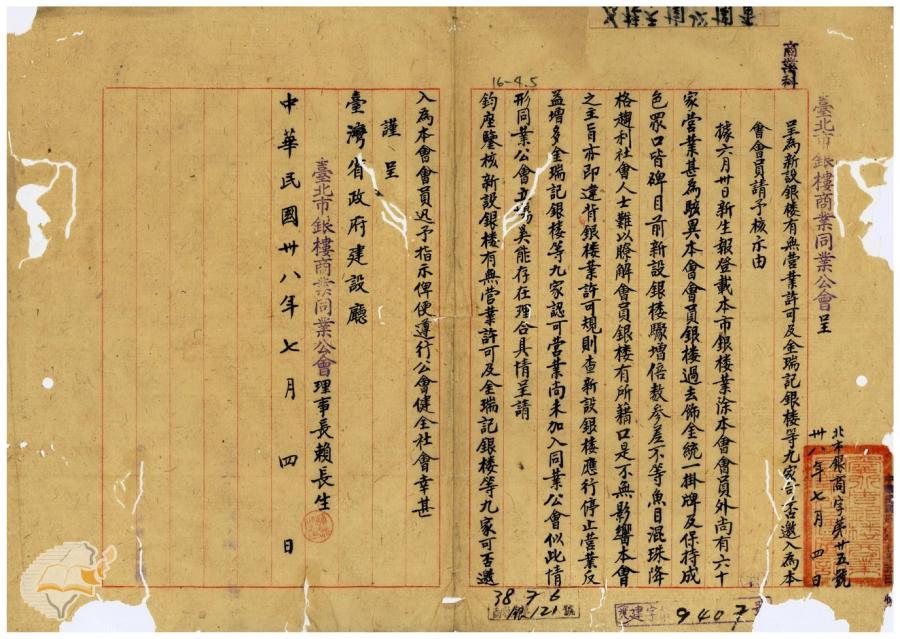 商業科
臺北市銀樓商業同業公會呈
北市銀商字第廿五號
卅八年七月四日
呈為新設銀楼有無营業許可及金瑞記銀楼等九家可否邀入為本
會會員請予核示由
據六月卅日新生報登載本市銀楼業涂本會會員外尚有六十
家营業甚為駭異本會會員銀楼過去飾金統一掛牌及保持成
色眾口皆碑目前新設銀楼驟增倍数参差不等魚目混珠降
格趨利社會人士難以瞭解會員銀楼有所藉口是不無影響本會
之主旨亦即違背銀楼業許可規則查新設銀楼應行停止营業反
益增多金瑞記銀楼等九家認可营業尚未加入同業公會似此情
形同業公會立場奚能存在理合具情呈請
鈞座鑒核新設銀楼有無营業許可及金瑞記銀楼等九家可否邀
入為本會會員迅予指示俾便遵行公會健全社會幸甚
謹呈
臺灣省政府建設廳
臺北市銀樓商業同業公會理事長賴長生
中華民國卅八年七月四日
16-4.5
38 7 6
銀121號
建字
9407